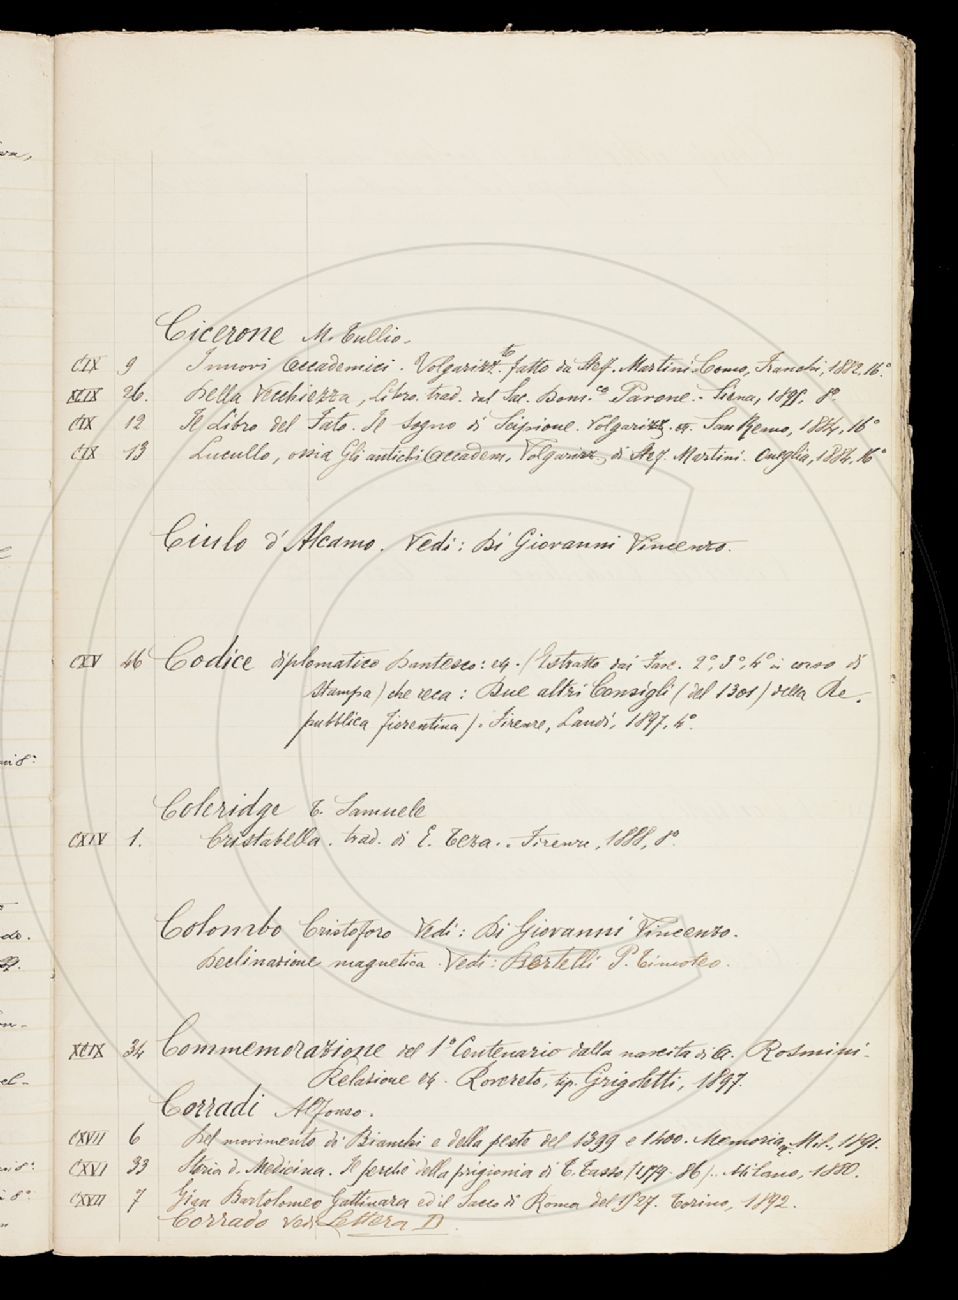 Cicerone M. Tullio.
CIX 9 I nuovi Accademici. Volgarizz.to fatto da Stef. Martini. Como, Franchi, 1882, 16°
XLIX 26. Della Vecchiezza, Libro, trad. dal Sac. Dom.co Pavone. - Siena, 8°.
CIX 12 Il Libro del Fato. Il Sogno di Scipione. Volgarizz. San Remo, 1884, 16°
CIX 13 Lucullo, ossia Gli antichi Accadem. Volgarizz. di Stef. Martini. Oneglia, 1884, 16°
Ciulo d'Alcamo. Vedi: Di Giovanni Vincenzo.
CXV 46 Codice diplomatico Dantesco: (Estratto dai Fasc. 2°, 3°, 4° in corso di
stampa) che reca: Due altri Consigli (del 1301) della Re-
pubblica fiorentina). Firenze, Landi, 1897, 4°.
Coleridge T. Samuele
CXIV 1. Cristabella. trad. di E. Teza. - Firenze, 1888, 8°.
Colombo Cristoforo Vedi: Di Giovanni Vincenzo.
Declinazione magnetica. Vedi: Bertelli P. Timoteo.
XLIX 34 Commemorazione del 1° Centenario dalla nascita di A. Rosmini.
Relazione Rovereto, tip. Grigoletti, 1897.
Corradi Alfonso.
CXVII 6 Del movimento di Bianchi e della peste del 1399 e 1400. Memoria. Mil., 1891.
CXVI 33 Storia d. Medicina. Il perchè della prigionia di T. Tasso (1579-86). Milano, 1880.
CXVII 7 Gian Bartolomeo Gattinara ed il Sacco di Roma del 1527. Torino, 1892.
Corrado Vedi Lettera D.